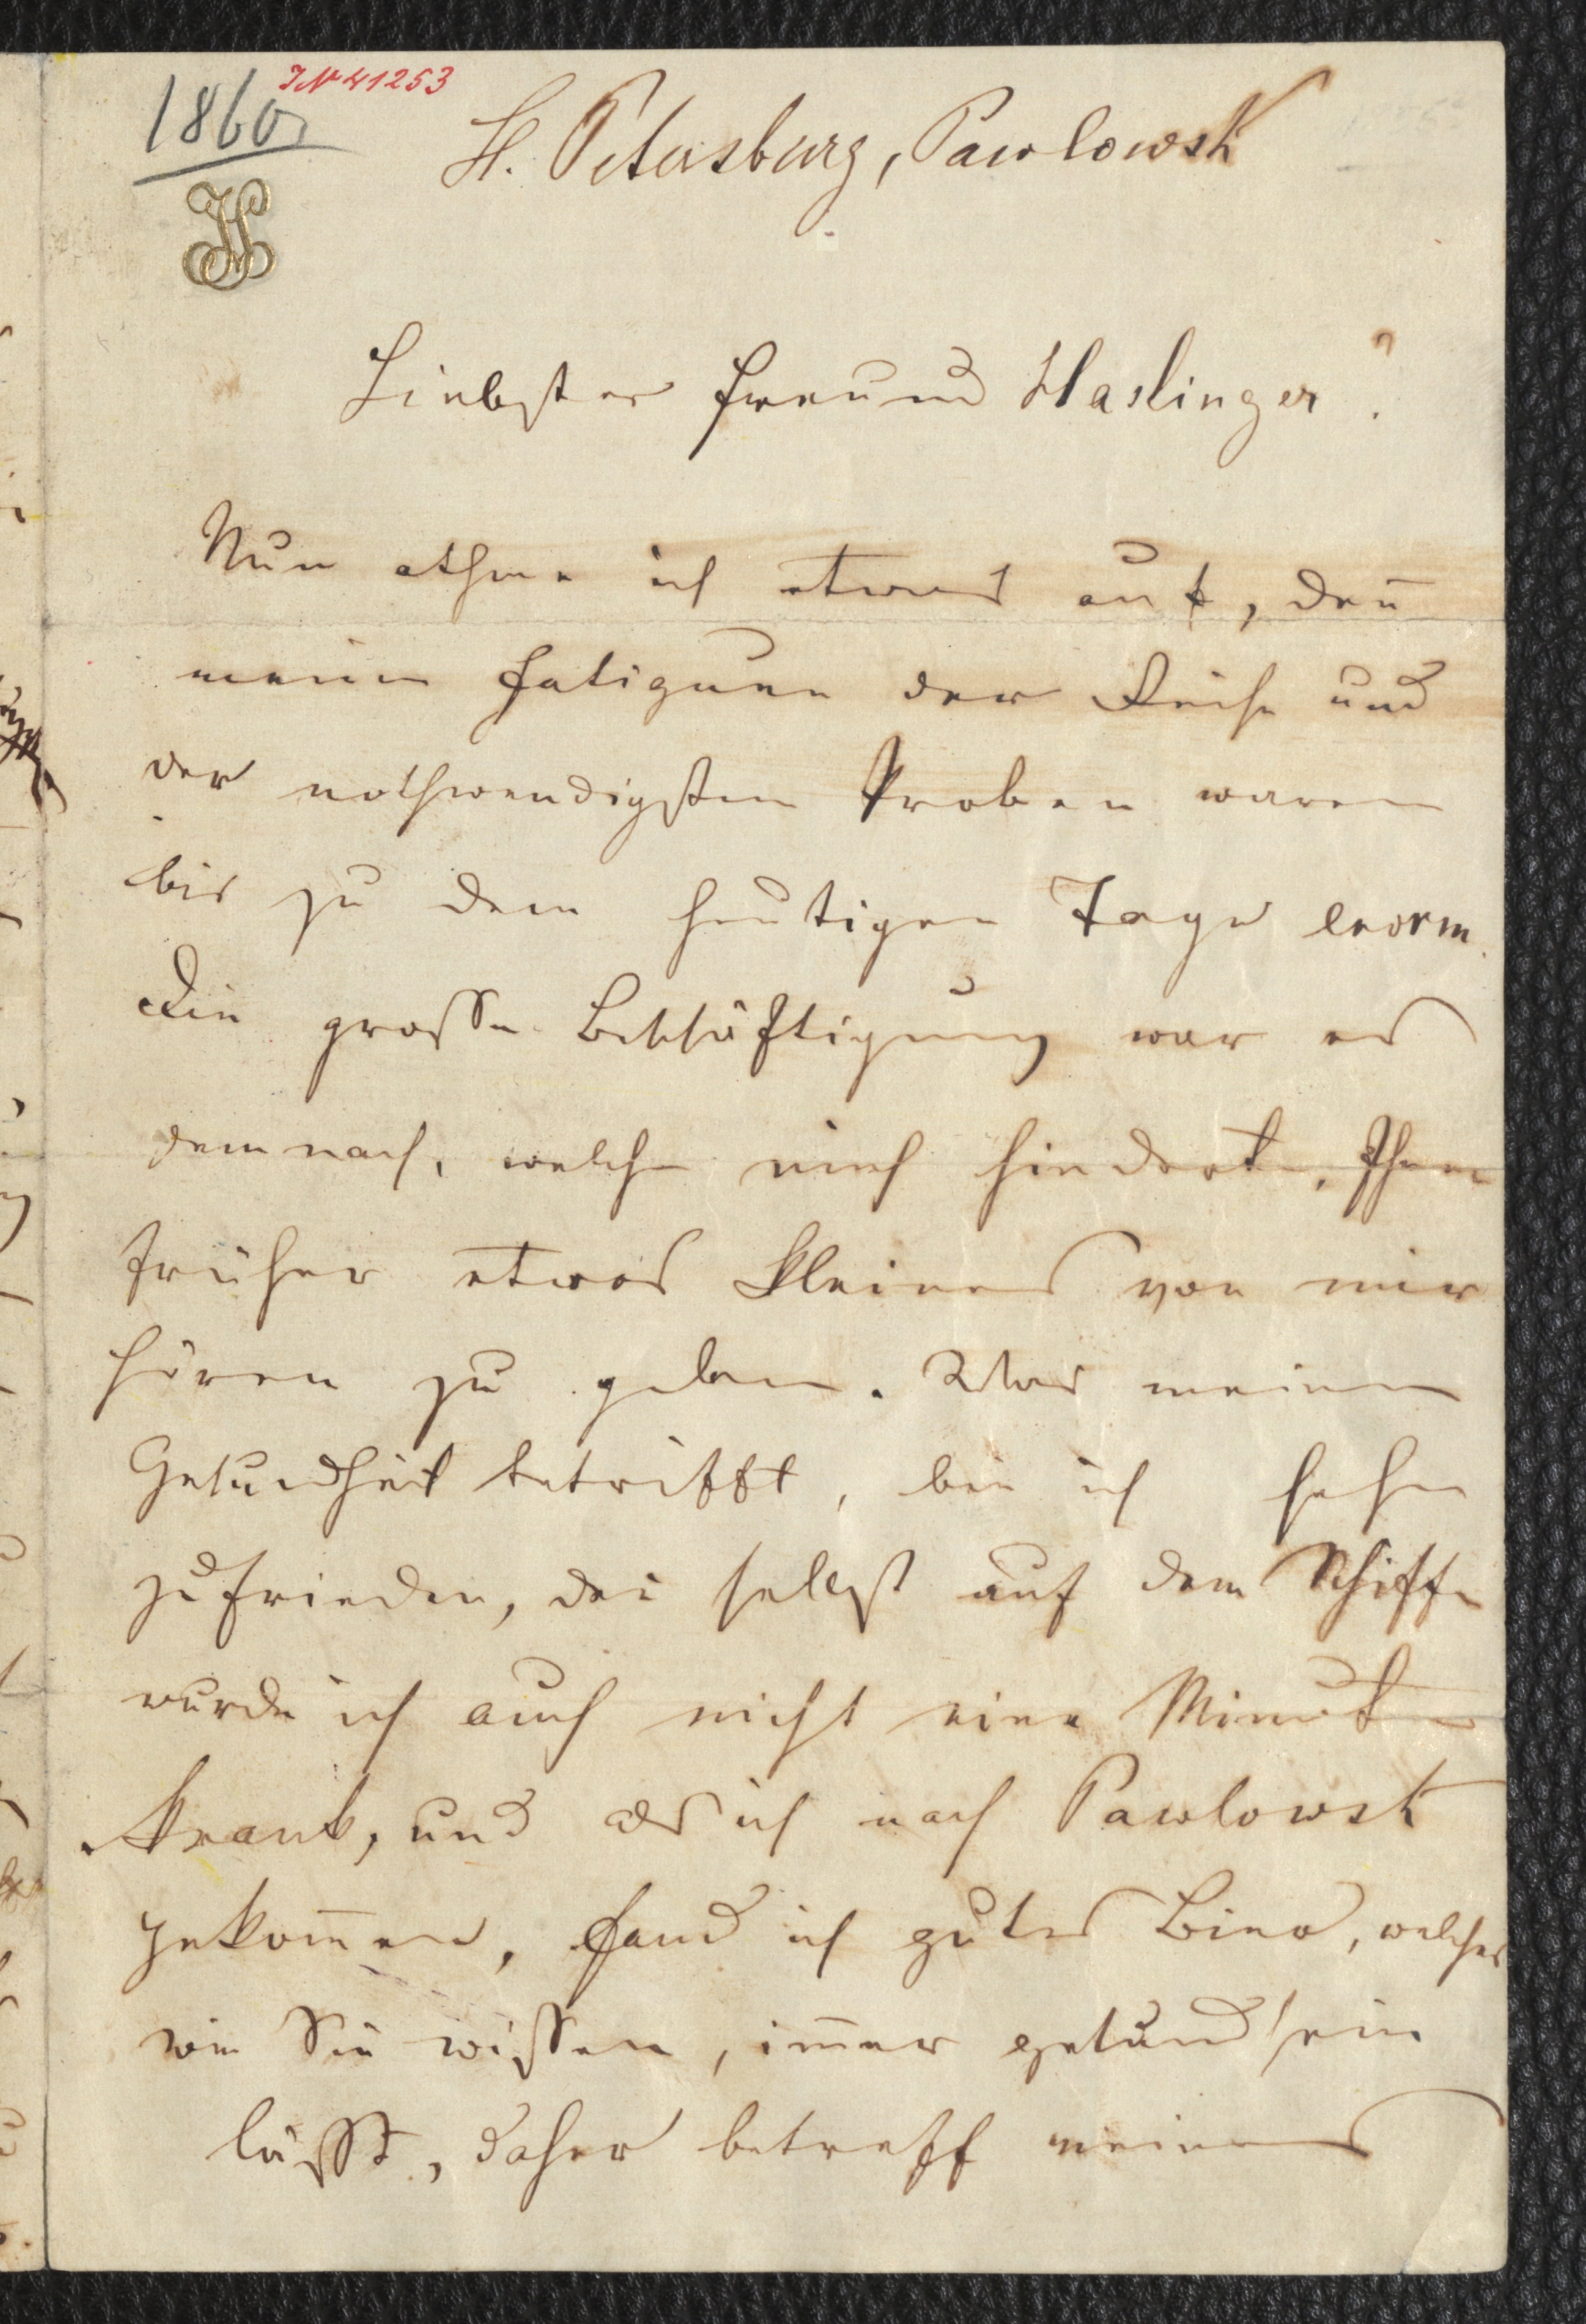 1860
IN 41253
St. Petersburg, Pawlowsk
JS
Liebster Freund Haslinger!
Nun athme ich etwas auf, den̄
meine Fatiguen der Reise und
der nothwendigsten Proben waren
bis zu dem heutigen Tage enorm.
Die grosse Beschäftigung war es
demnach, welche mich hinderte, Ihnen
früher etwas Kleines von mir
hören zu geben. Was meine
Gesundheit betrifft, bin ich sehr
zufrieden, den selbst auf dem Schiffe
wurde ich auch nicht eine Minute
krank, und als ich nach Pawlowsk
gekom̄en, fand ich gutes Bier, welches
wie Sie wissen, im̄er gesund sein
lässt, daher betreff meines